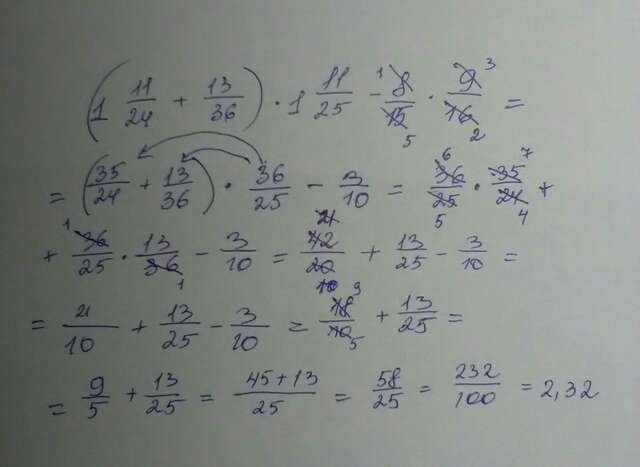 (1 11/24 + 13/36) · 1 11/25 - 8/15 · 9/16 =
= (35/24 + 13/36) · 36/25 - 3/10 = 36/25 · 35/24 +
+ 36/25 · 13/36 - 3/10 = 42/20 + 13/25 - 3/10 =
= 21/10 + 13/25 - 3/10 = 18/10 + 13/25 =
= 9/5 + 13/25 = 45+13/25 = 58/25 = 232/100 = 2,32